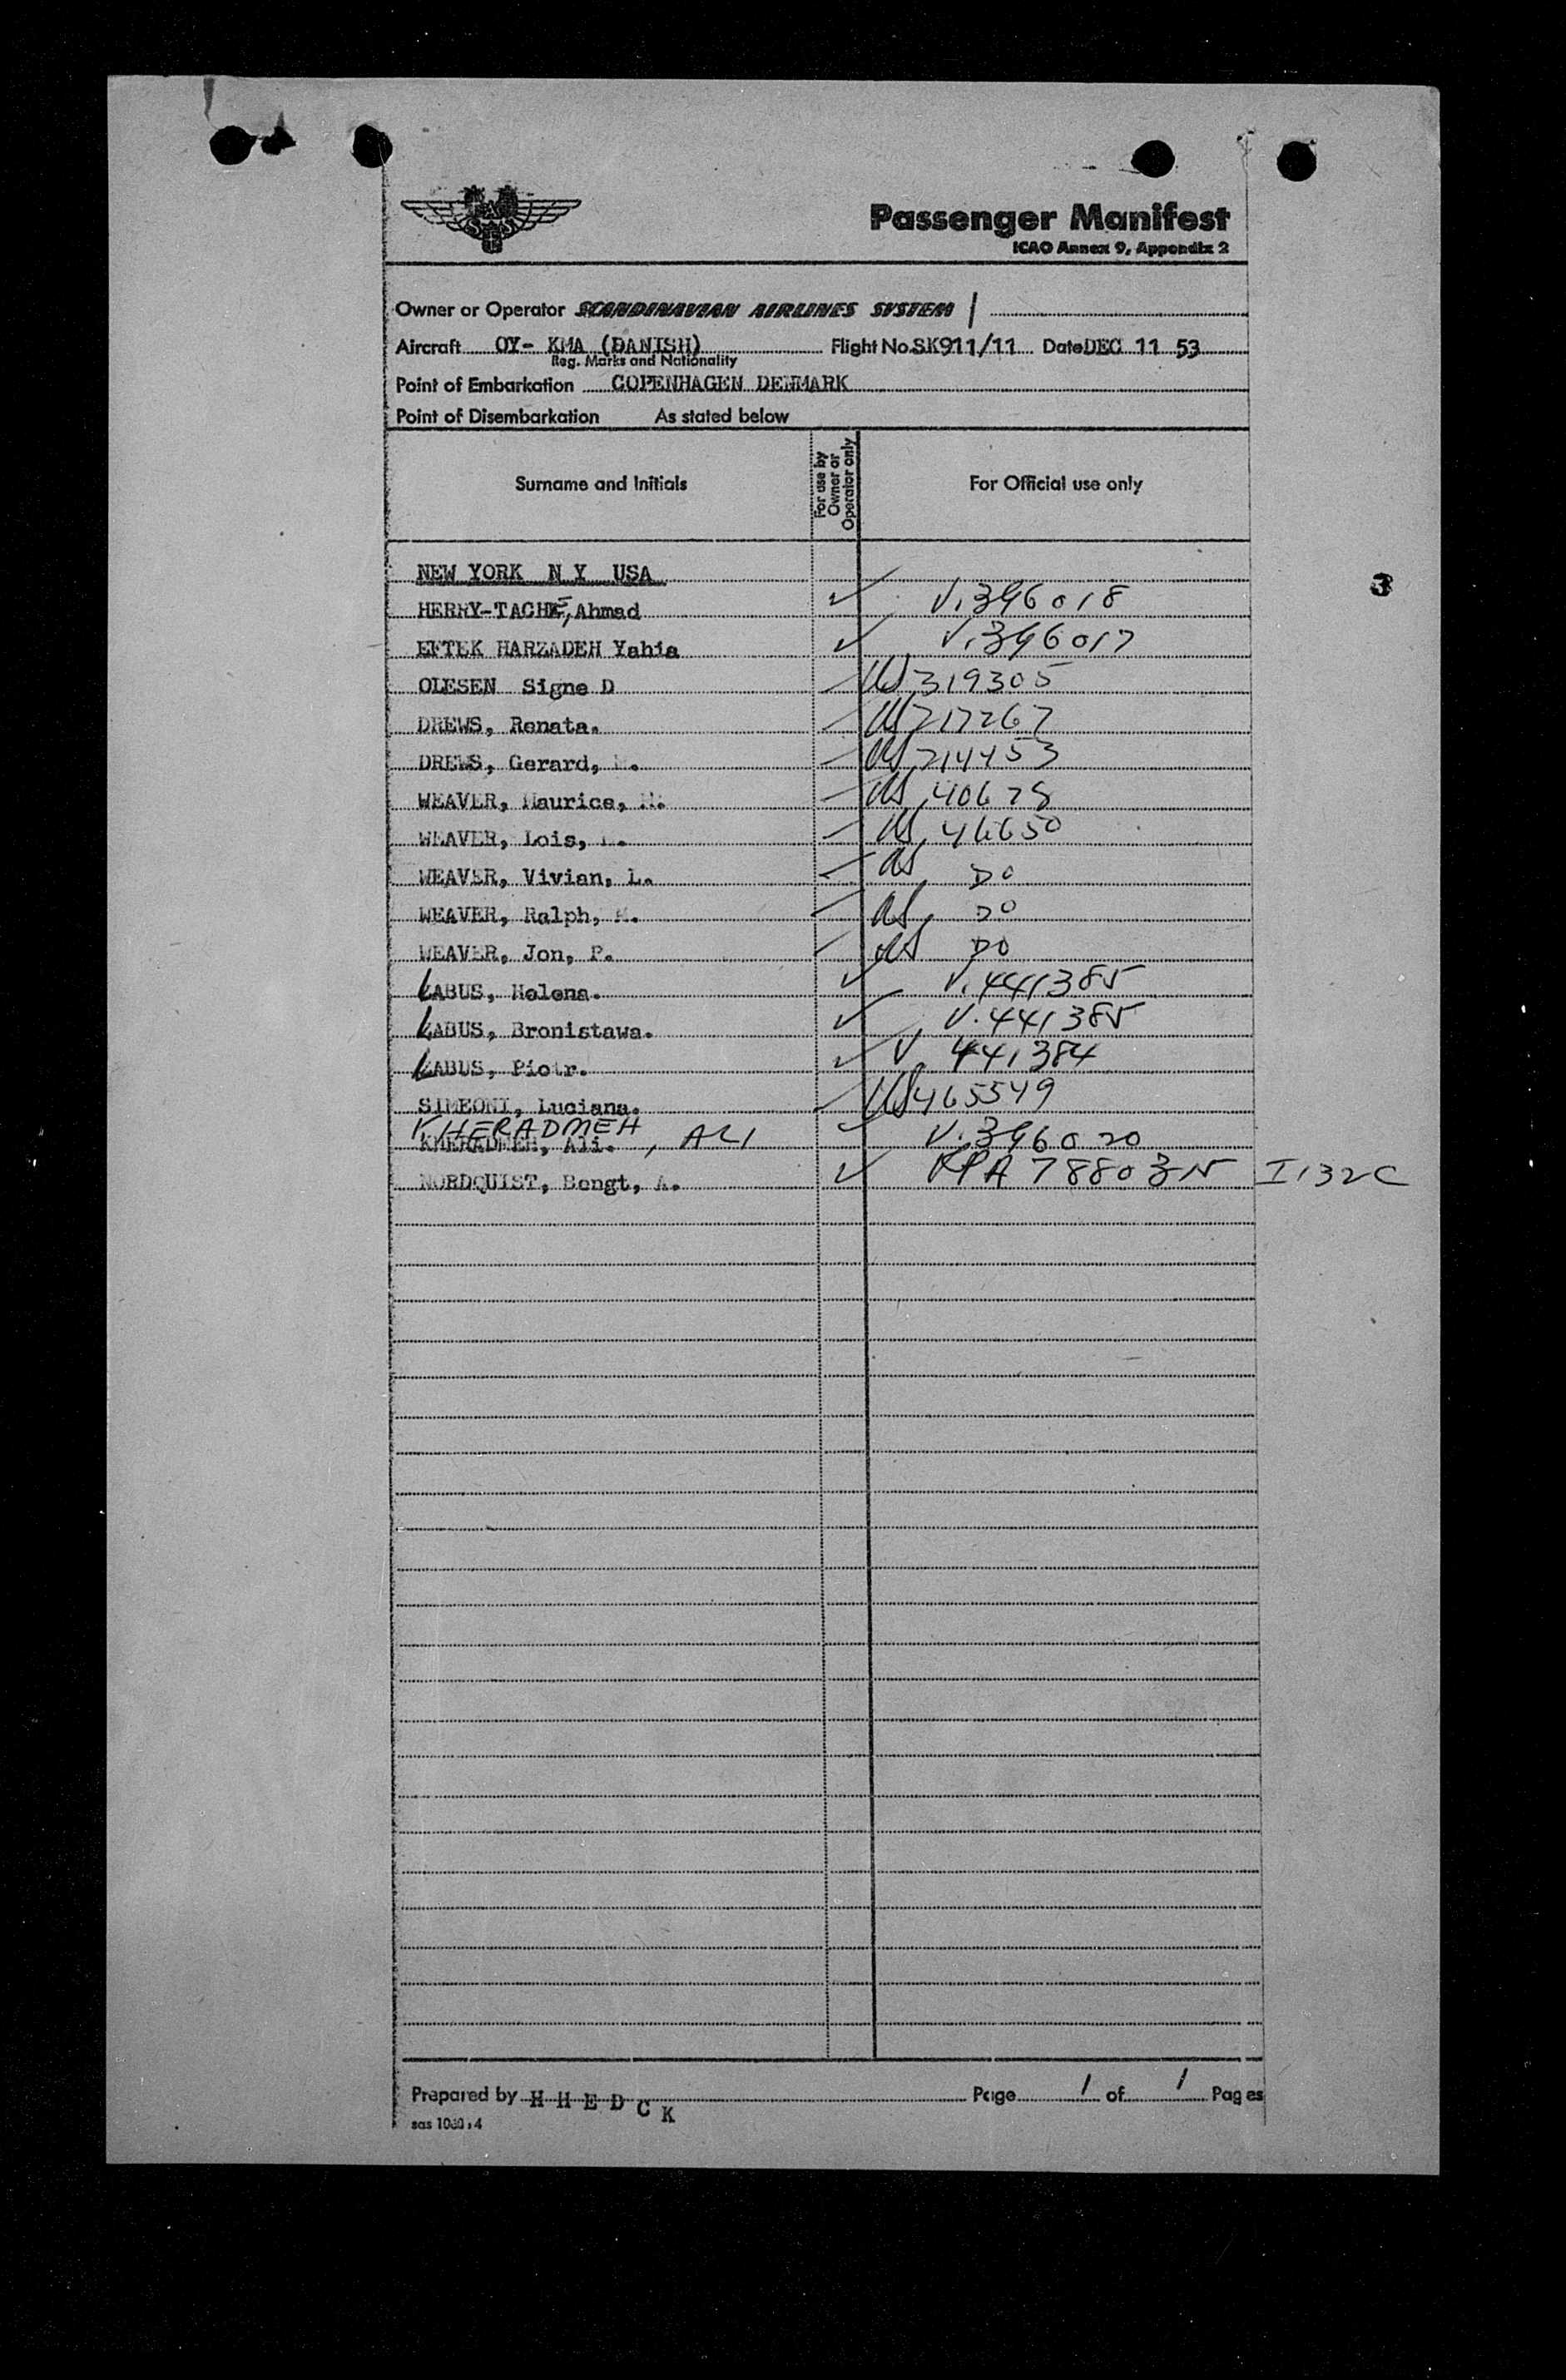 SAS
Passenger Manifest
ICAO Annex 9, Appendix 2
Owner or Operator SCANDINAVIAN AIRLINES SYSTEM
Aircraft OY- KMA (DANISH) Flight No. SK911/11 Date DEC 11 53
Reg. Marks and Nationality
Point of Embarkation COPENHAGEN DENMARK
Point of Disembarkation As stated below
Surname and Initials For use by Owner or Operator only For Official use only
NEW YORK N Y USA
3
HERRY-TACHE, Ahmad ✓ V.396018
EFTEK HARZADEH Yahia ✓ V.396017
OLESEN Signe D US 319305
DREWS, Renata. US 217267
DREWS, Gerard, US 214453
WEAVER, Maurice, M. US 40678
WEAVER, Lois, US 46650
WEAVER, Vivian, L. US DO
WEAVER, Ralph, US DO
WEAVER, Jon, P. US DO
LABUS, Helena. ✓ V.441385
LABUS, Bronistawa. ✓ V.441385
LABUS, Piotr. ✓ V. 441384
SIMEONI, Luciana. US 465549
KHERADMEH, ALI
Ali. ✓ V.396020
NORDQUIST, Bengt, A. ✓ RPA 78803N I132C
Prepared by H HEDCK Page 1 of 1 Pages
sas 1030:4